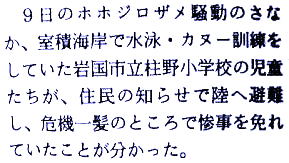 9日のホホジロザメ騒動のさな
か、室積海岸で水泳・カヌー訓練を
していた岩国市立柱野小学校の児童
たちが、住民の知らせで陸へ避難
し、危機一髪のところで惨事を免れ
ていたことが分かった。